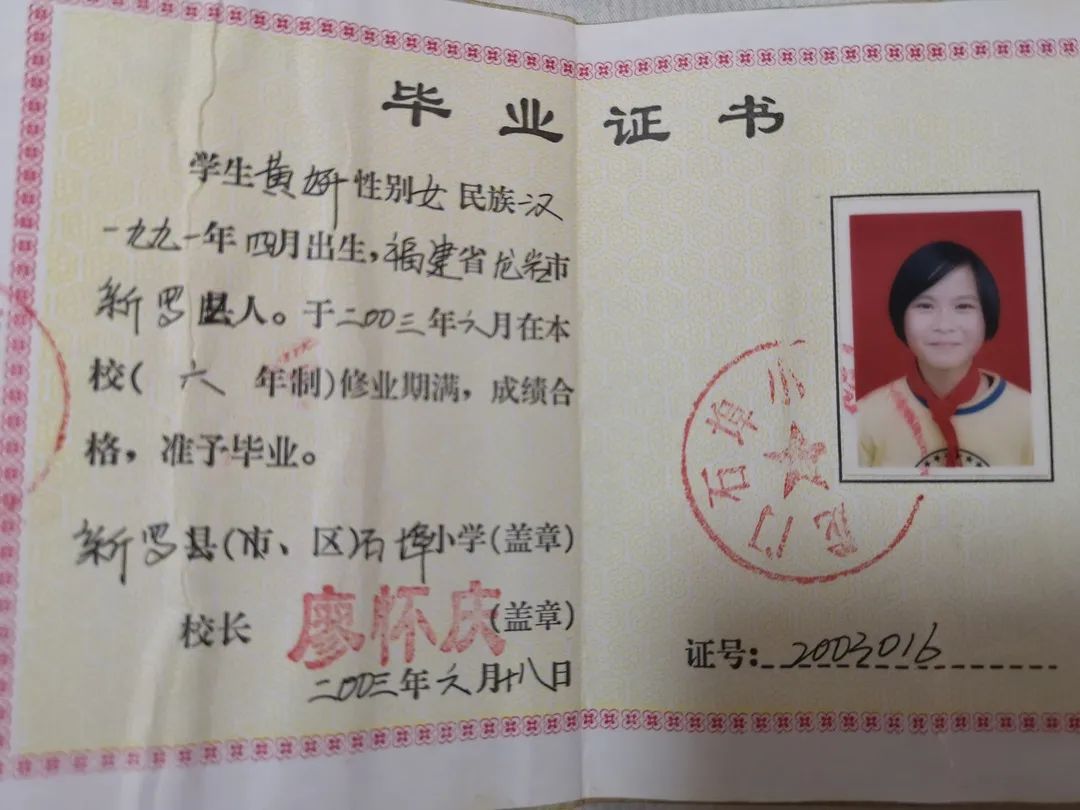 毕业证书
学生黄妍性别女民族汉
一九九一年四月出生,福建省龙岩市
新罗县人。于二00三年六月在本
校(六年制)修业期满,成绩合
格,准予毕业。
新罗县(市、区)石埠小学(盖章)
校长 廖怀庆(盖章)
二00三年六月十八日
龙门石埠小
证号:2003016